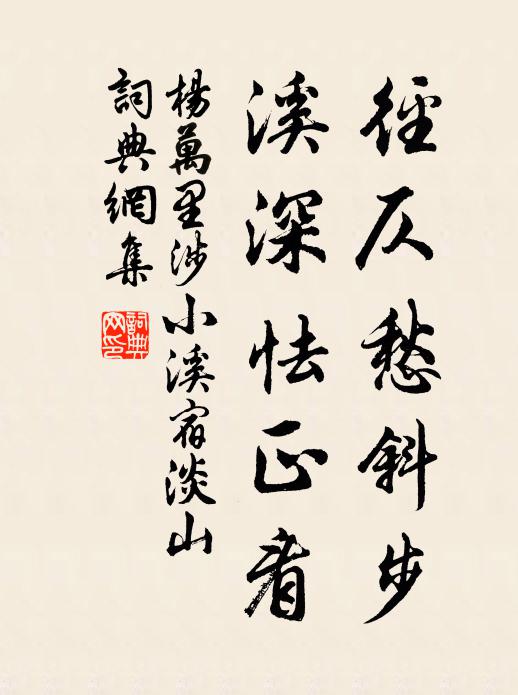 徑仄愁斜步
溪深怯正看
楊萬里涉小溪宿淡山
詞典網集
詞典網印